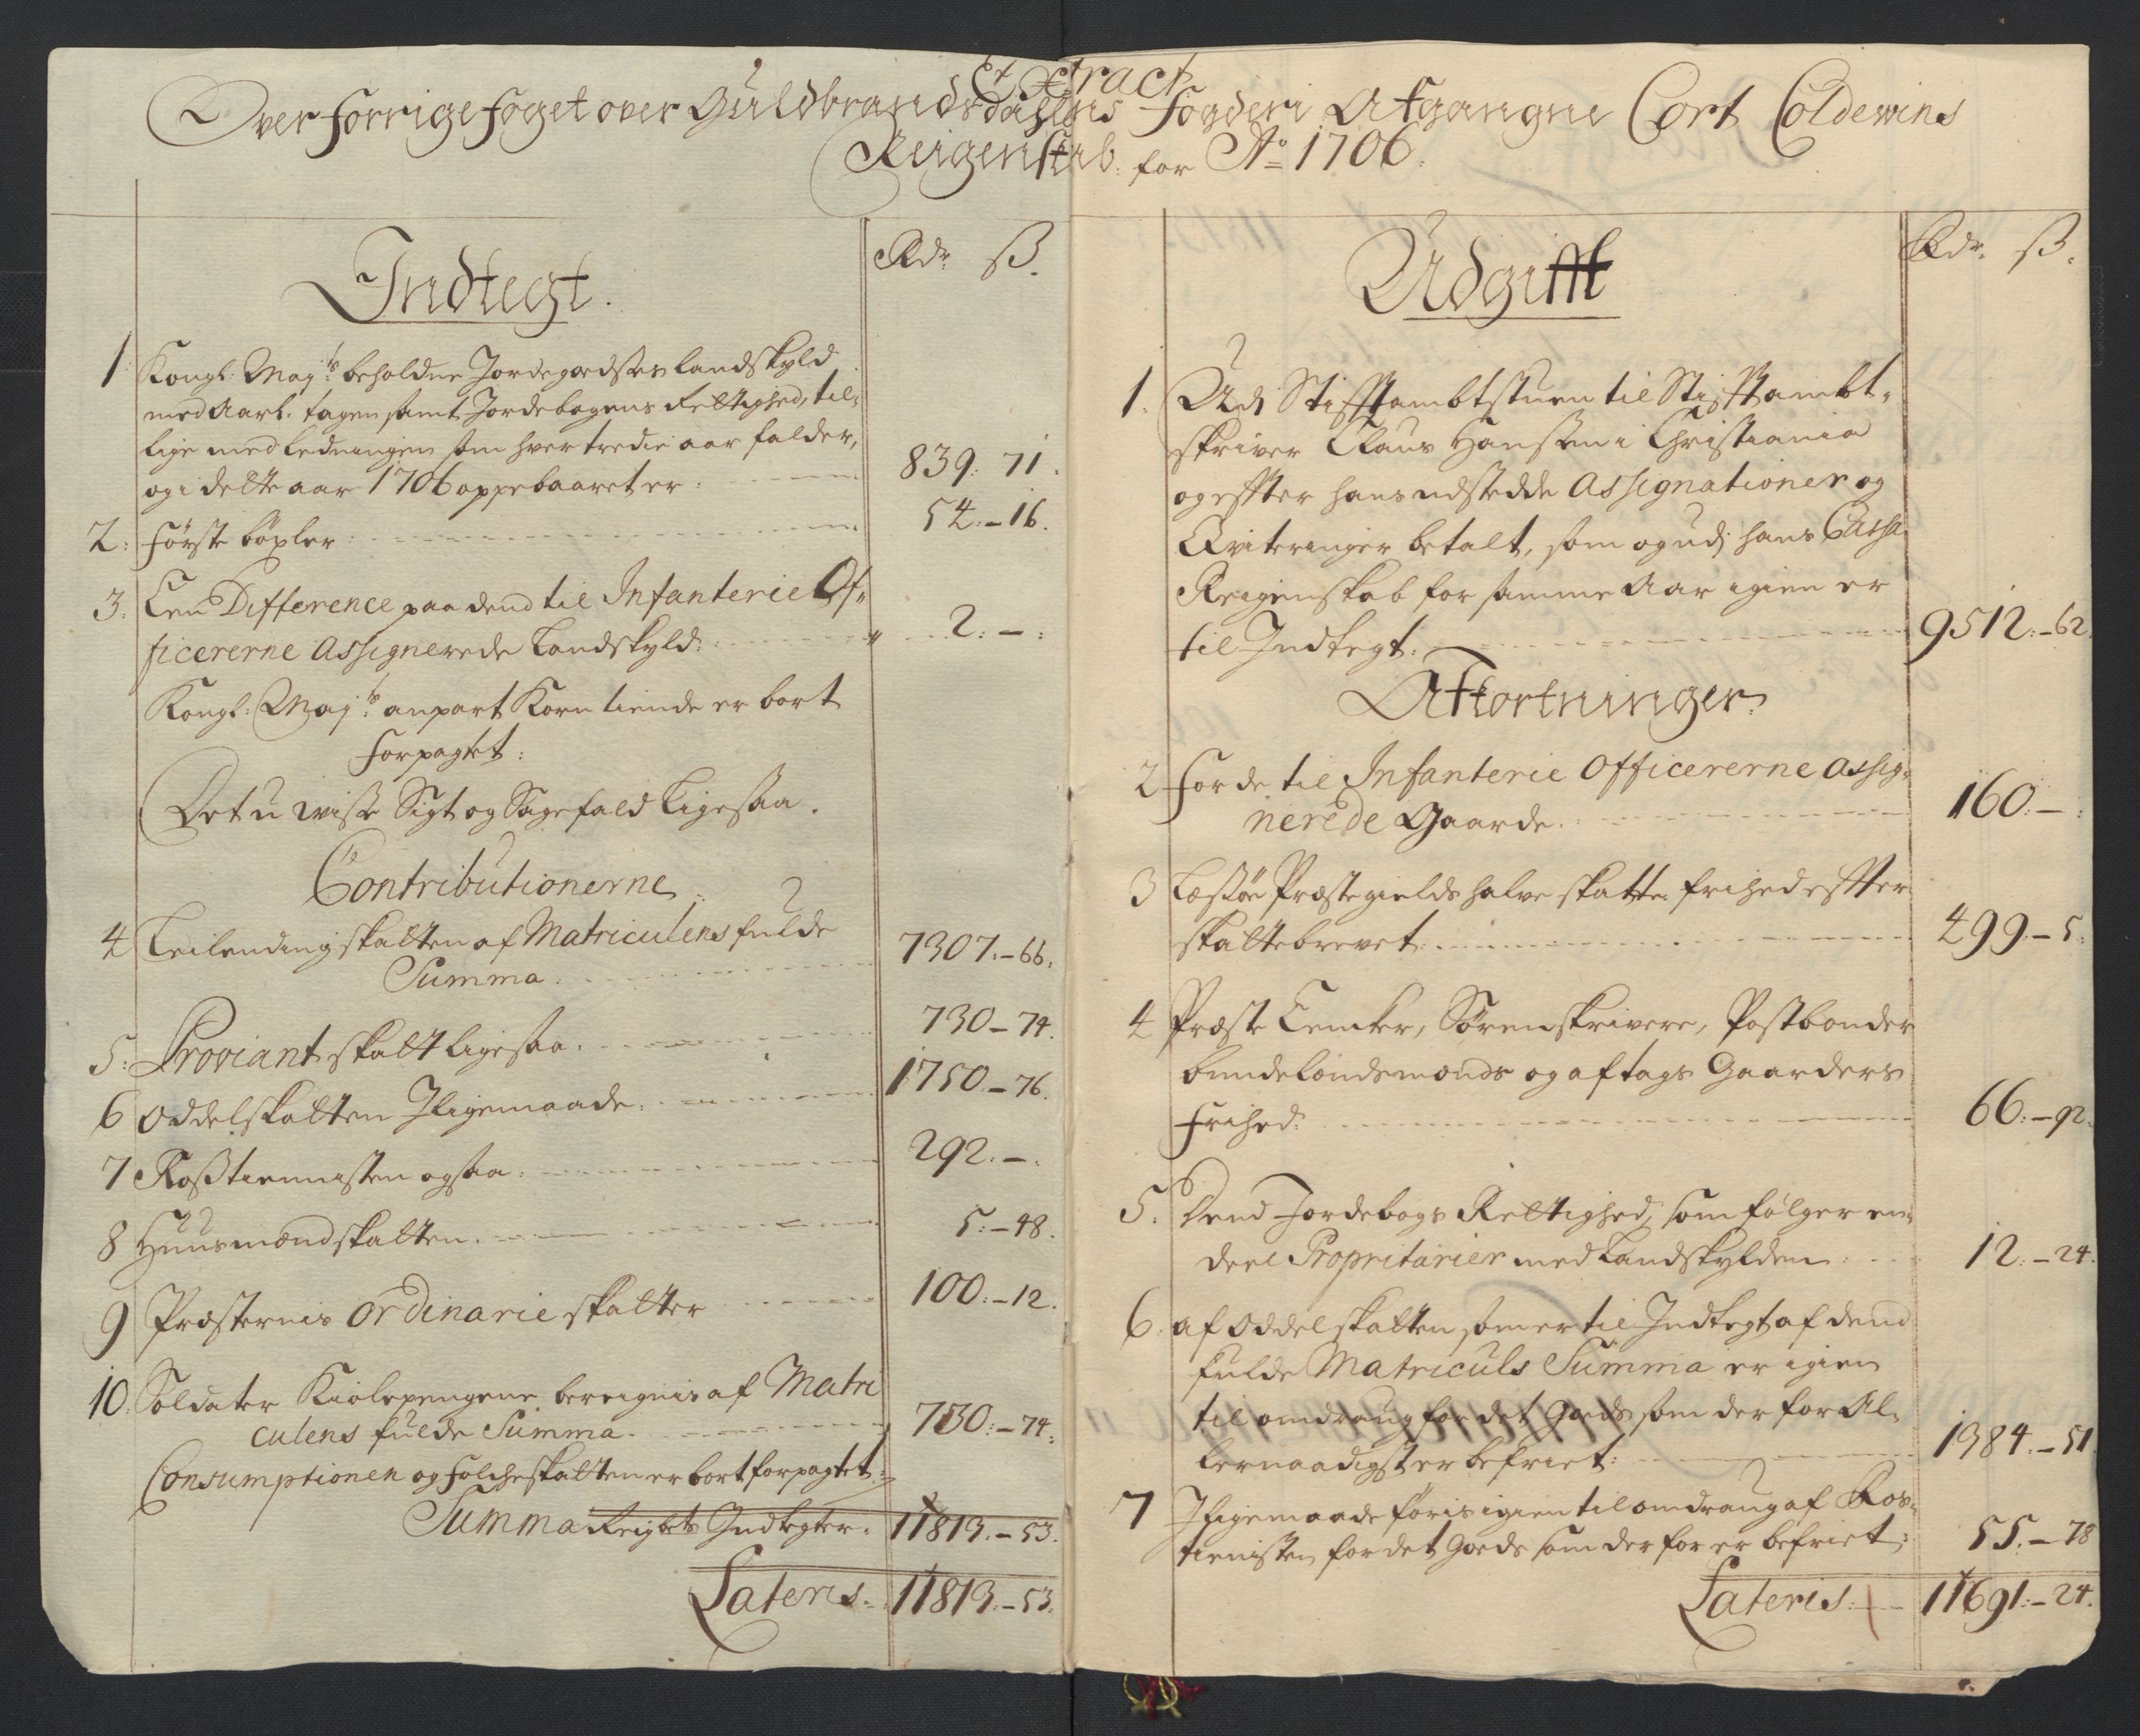 Extract
Over Forrige Foget over Guldbrandsdahlens Fogderi Afgangne Cort Coldewins
Reigenskab for Ao 1706.
Indtegt.
Rdr ß.
1 Kongl: Maj:ts beholdne Jordegodses landskyld
med Aarl. tagen samt Jordebogens Rettighed, til-
lige med ledningen som hver tredie aar falder,
og i dette aar 1706 oppebaaret er: 839: 71.
2: Første bøxler: 54:-16.
3: Een Difference paa dend til Infanterie Of-
ficererne Assignerede Landskyld: 2:-:
Kongl: Maj:ts anpart Korn tiende er bort
forpagtet:
Det u wisse Sigt og Sagefald Ligesaa.
Contributionerne
4 Leilendingskatten af Matriculens fulde
Summa. 7307:-66:
5: Proviant skatt ligesaa. 730-74.
6 Oddelskatten Jligemaade. 1750-76.
7 Rosstiennisten ogsaa. 292.-.
8 Huusmændskatten. 5:-48.
9 Præsternis Ordinarie skatter 100:-12.
10. Soldater Kiolepengene beregnis af Matri
culens fulde Summa. 730:-74:
Consumptionen og Folcheskatten er bortforpagtet.
Summa Reigbets Indtegter. 11813.-53.
Lateris. 11813.-53.
Udgifft
Rdr. ß.
1. Udj Stifftambtstuen til Stifftambt-
skriver Claus Hanssen i Christiania
og effter hans udstedde Assignationer og
Qviteringer betalt, som og udj hans Cassa
Reigenskab for samme Aar igien er
til Indtegt. 9512:-62.
Afkortninger
2 For de til Infanterie Officererne Assig-
nerede Gaarde. 160:-:
3 Læssøe Præstegields halve skatte frihed effter
skattebrevet 499-5:
4 Præste Encker, Sørenskrivere, Postbønder
bundelændsmænds og aftags Gaarders
Frihed: 66:-92.
5. Dend Jordebogs Rettighed, som følger en-
deel Propritarier med Landskylden: 12.-24.
6. af Oddelskatten som er til Indtegt af dend
fulde Matriculs Summa er igien
til omdraug for det Goeds som der for Al-
lernaadigst er befriet: 1384.-51.
7 Jligemaade føris igien til omdraug af Ros-
tienisten for det Goeds som der for er befriet: 55.-78
Lateris: 11691:-24.